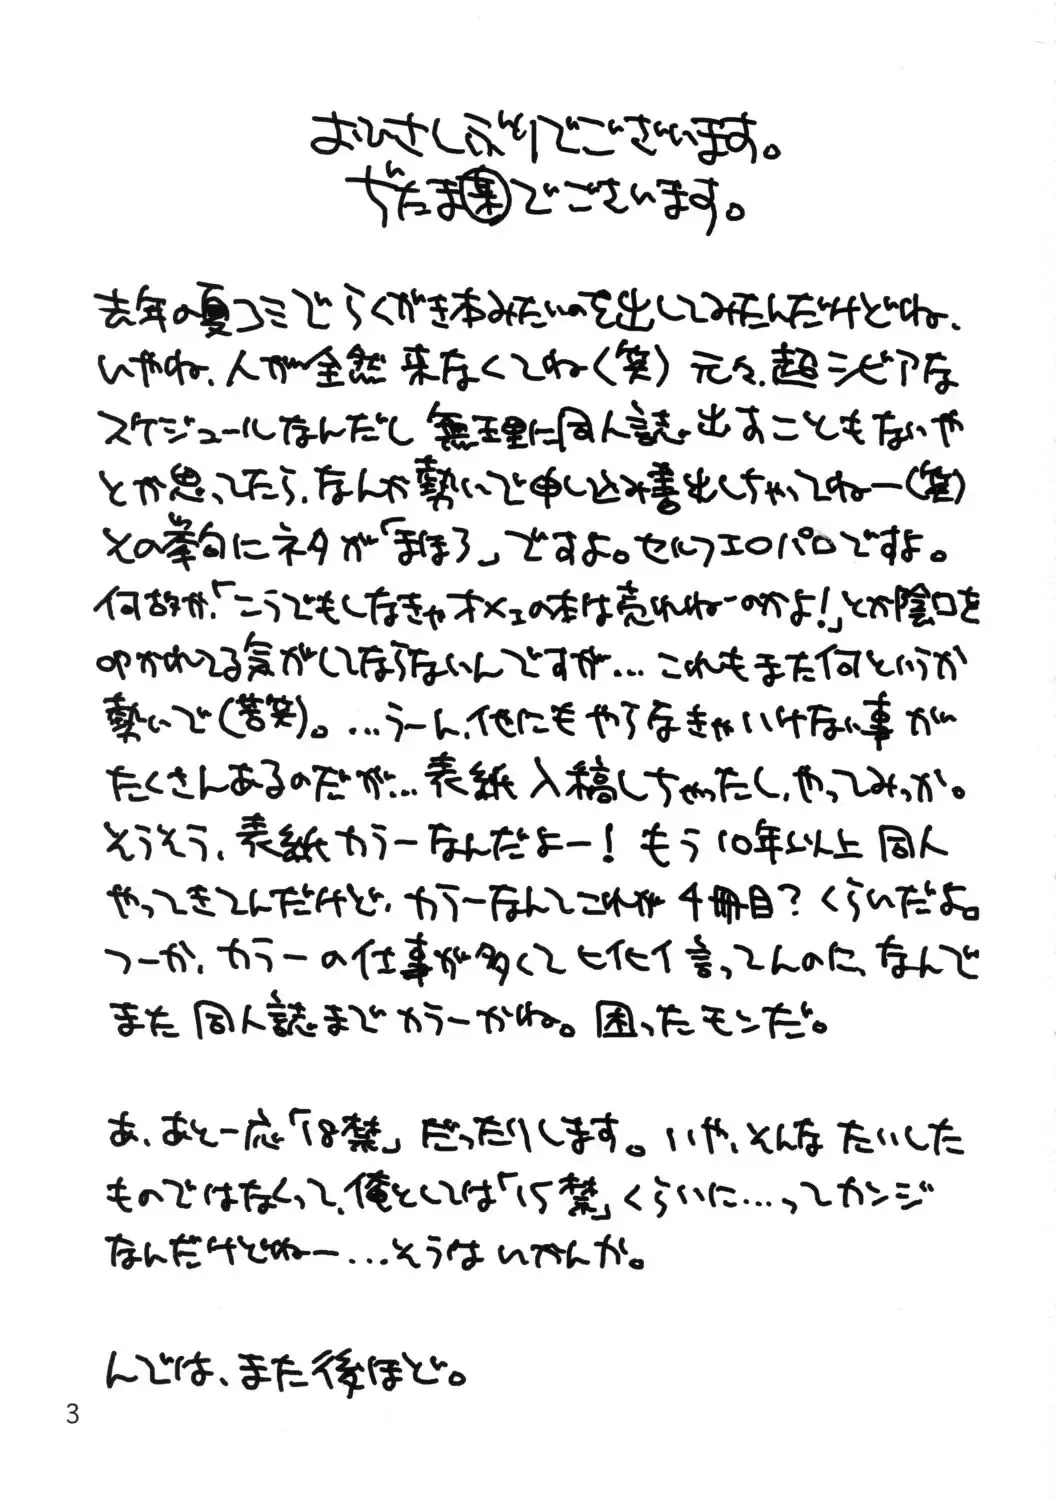 おひさしぶりでございます。
ぢたま(某)でございます。
去年の夏コミでらくがき本みたいのを出してみたんだけどね、
いやね、人が全然来なくてね(笑) 元々、超シビアな
スケジュールなんだし無理に同人誌出すこともないや
とか思ってたら、なんか勢いで申し込み書出しちゃってねー(笑)
その挙句にネタが「まほろ」ですよ。セルフエロパロですよ。
何故か、「こうでもしなきゃオメェの本は売れねーのかよ!」とか陰口を
叩かれてる気がしてならないんですが…これもまた何というか
勢いで(苦笑)。…うーん、他にもやらなきゃいけない事が
たくさんあるのだが…表紙入稿しちゃったし、やってみっか。
そうそう、表紙カラーなんだよー! もう10年以上同人
やってきてんだけど、カラーなんてこれが4冊目?くらいだよ。
つーか、カラーの仕事が多くてヒイヒイ言ってんのに、なんで
また同人誌までカラーかね。困ったモンだ。
あ、あと一応「18禁」だったりします。いや、そんなたいした
ものではなくって、俺としては「15禁」くらいに…ってカンジ
なんだけどねー…そうはいかんか。
んでは、また後ほど。
3